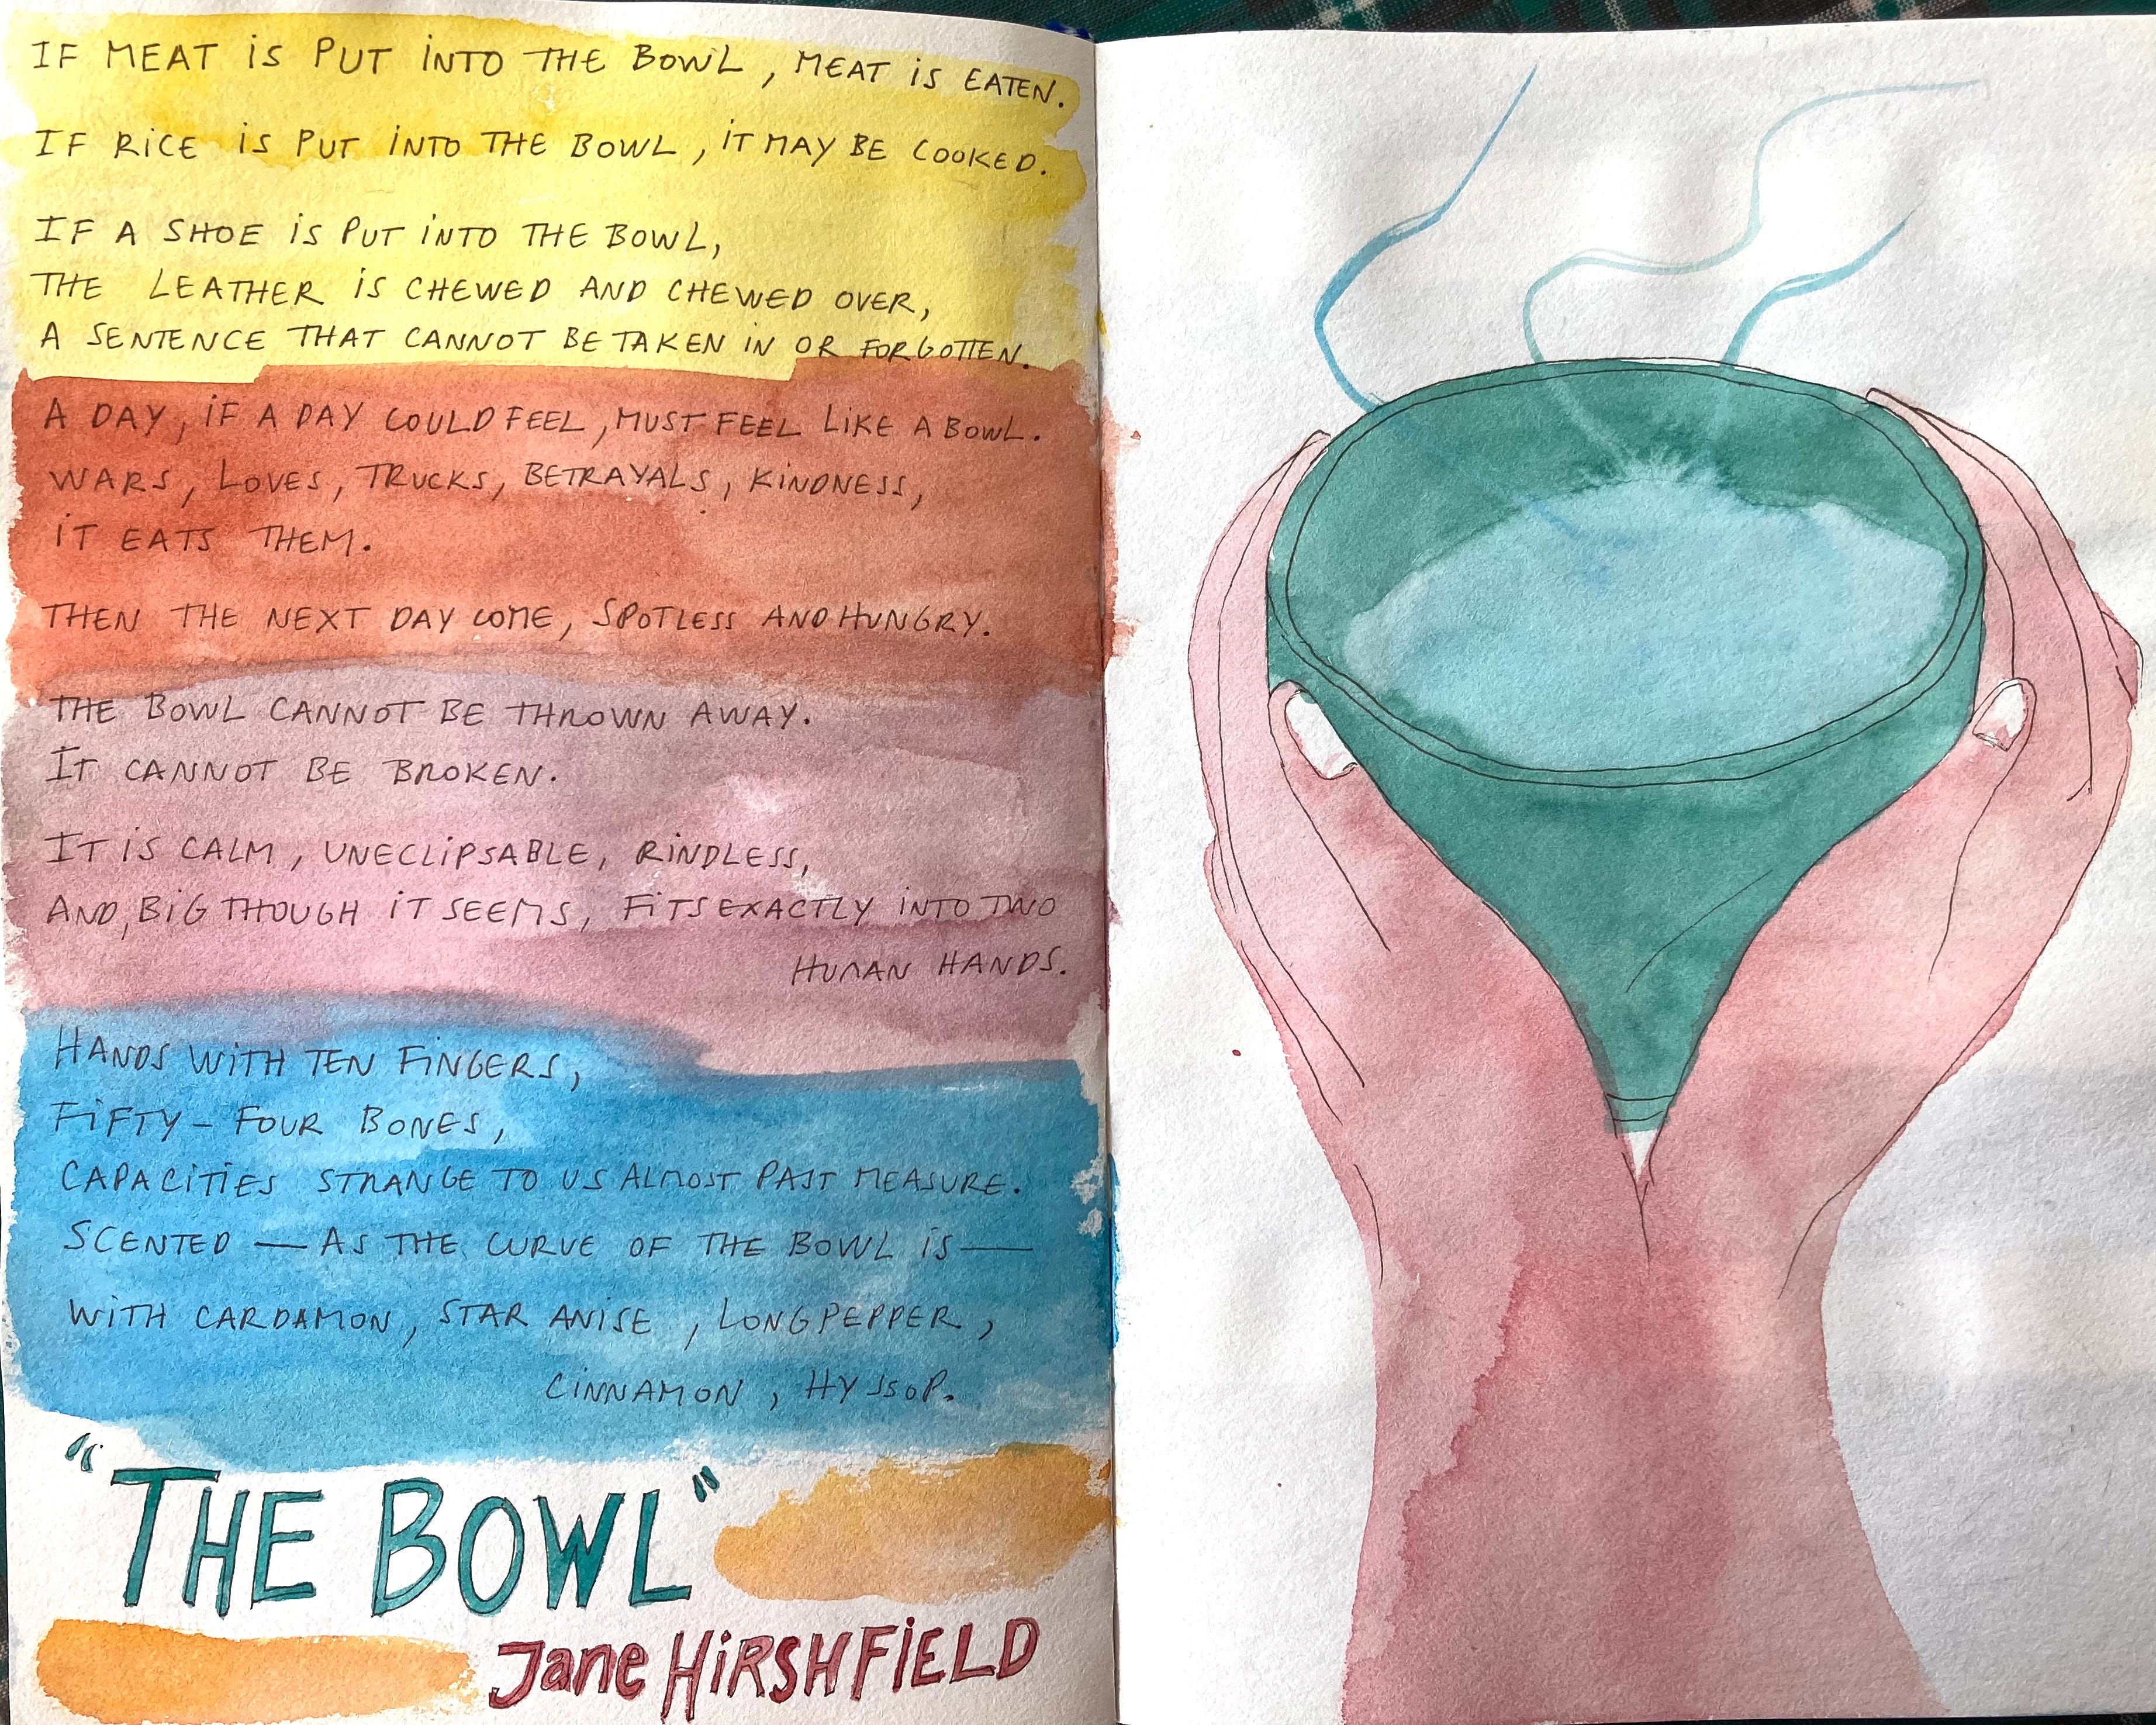 IF MEAT iS PUT iNTO THE BOWL, MEAT iS EATEN.
IF RiCE iS PUT iNTO THE BOWL, iT MAY BE COOKED.
IF A SHOE iS PUT iNTO THE BOWL,
THE LEATHER iS CHEWED AND CHEWED OVER,
A SENTENCE THAT CANNOT BE TAKEN iN OR FORGOTTEN.
A DAY, iF A DAY COULD FEEL, MUST FEEL LiKE A BOWL.
WARS, LOVES, TRUCKS, BETRAYALS, KiNDNESS,
iT EATS THEM.
THEN THE NEXT DAY COME, SPOTLESS AND HUNGRY.
THE BOWL CANNOT BE THROWN AWAY.
IT CANNOT BE BROKEN.
IT iS CALM, UNECLiPSABLE, RiNDLESS,
AND, BiG THOUGH iT SEEMS, FiTS EXACTLY iNTO TWO
HUMAN HANDS.
HANDS WiTH TEN FiNGERS,
FiFTY-FOUR BONES,
CAPACiTiES STRANGE TO US ALMOST PAST MEASURE.
SCENTED — AS THE CURVE OF THE BOWL iS —
WiTH CARDAMON, STAR ANiSE, LONG PEPPER,
CiNNAMON, HYSSOP.
"THE BOWL"
Jane HiRSHFiELD